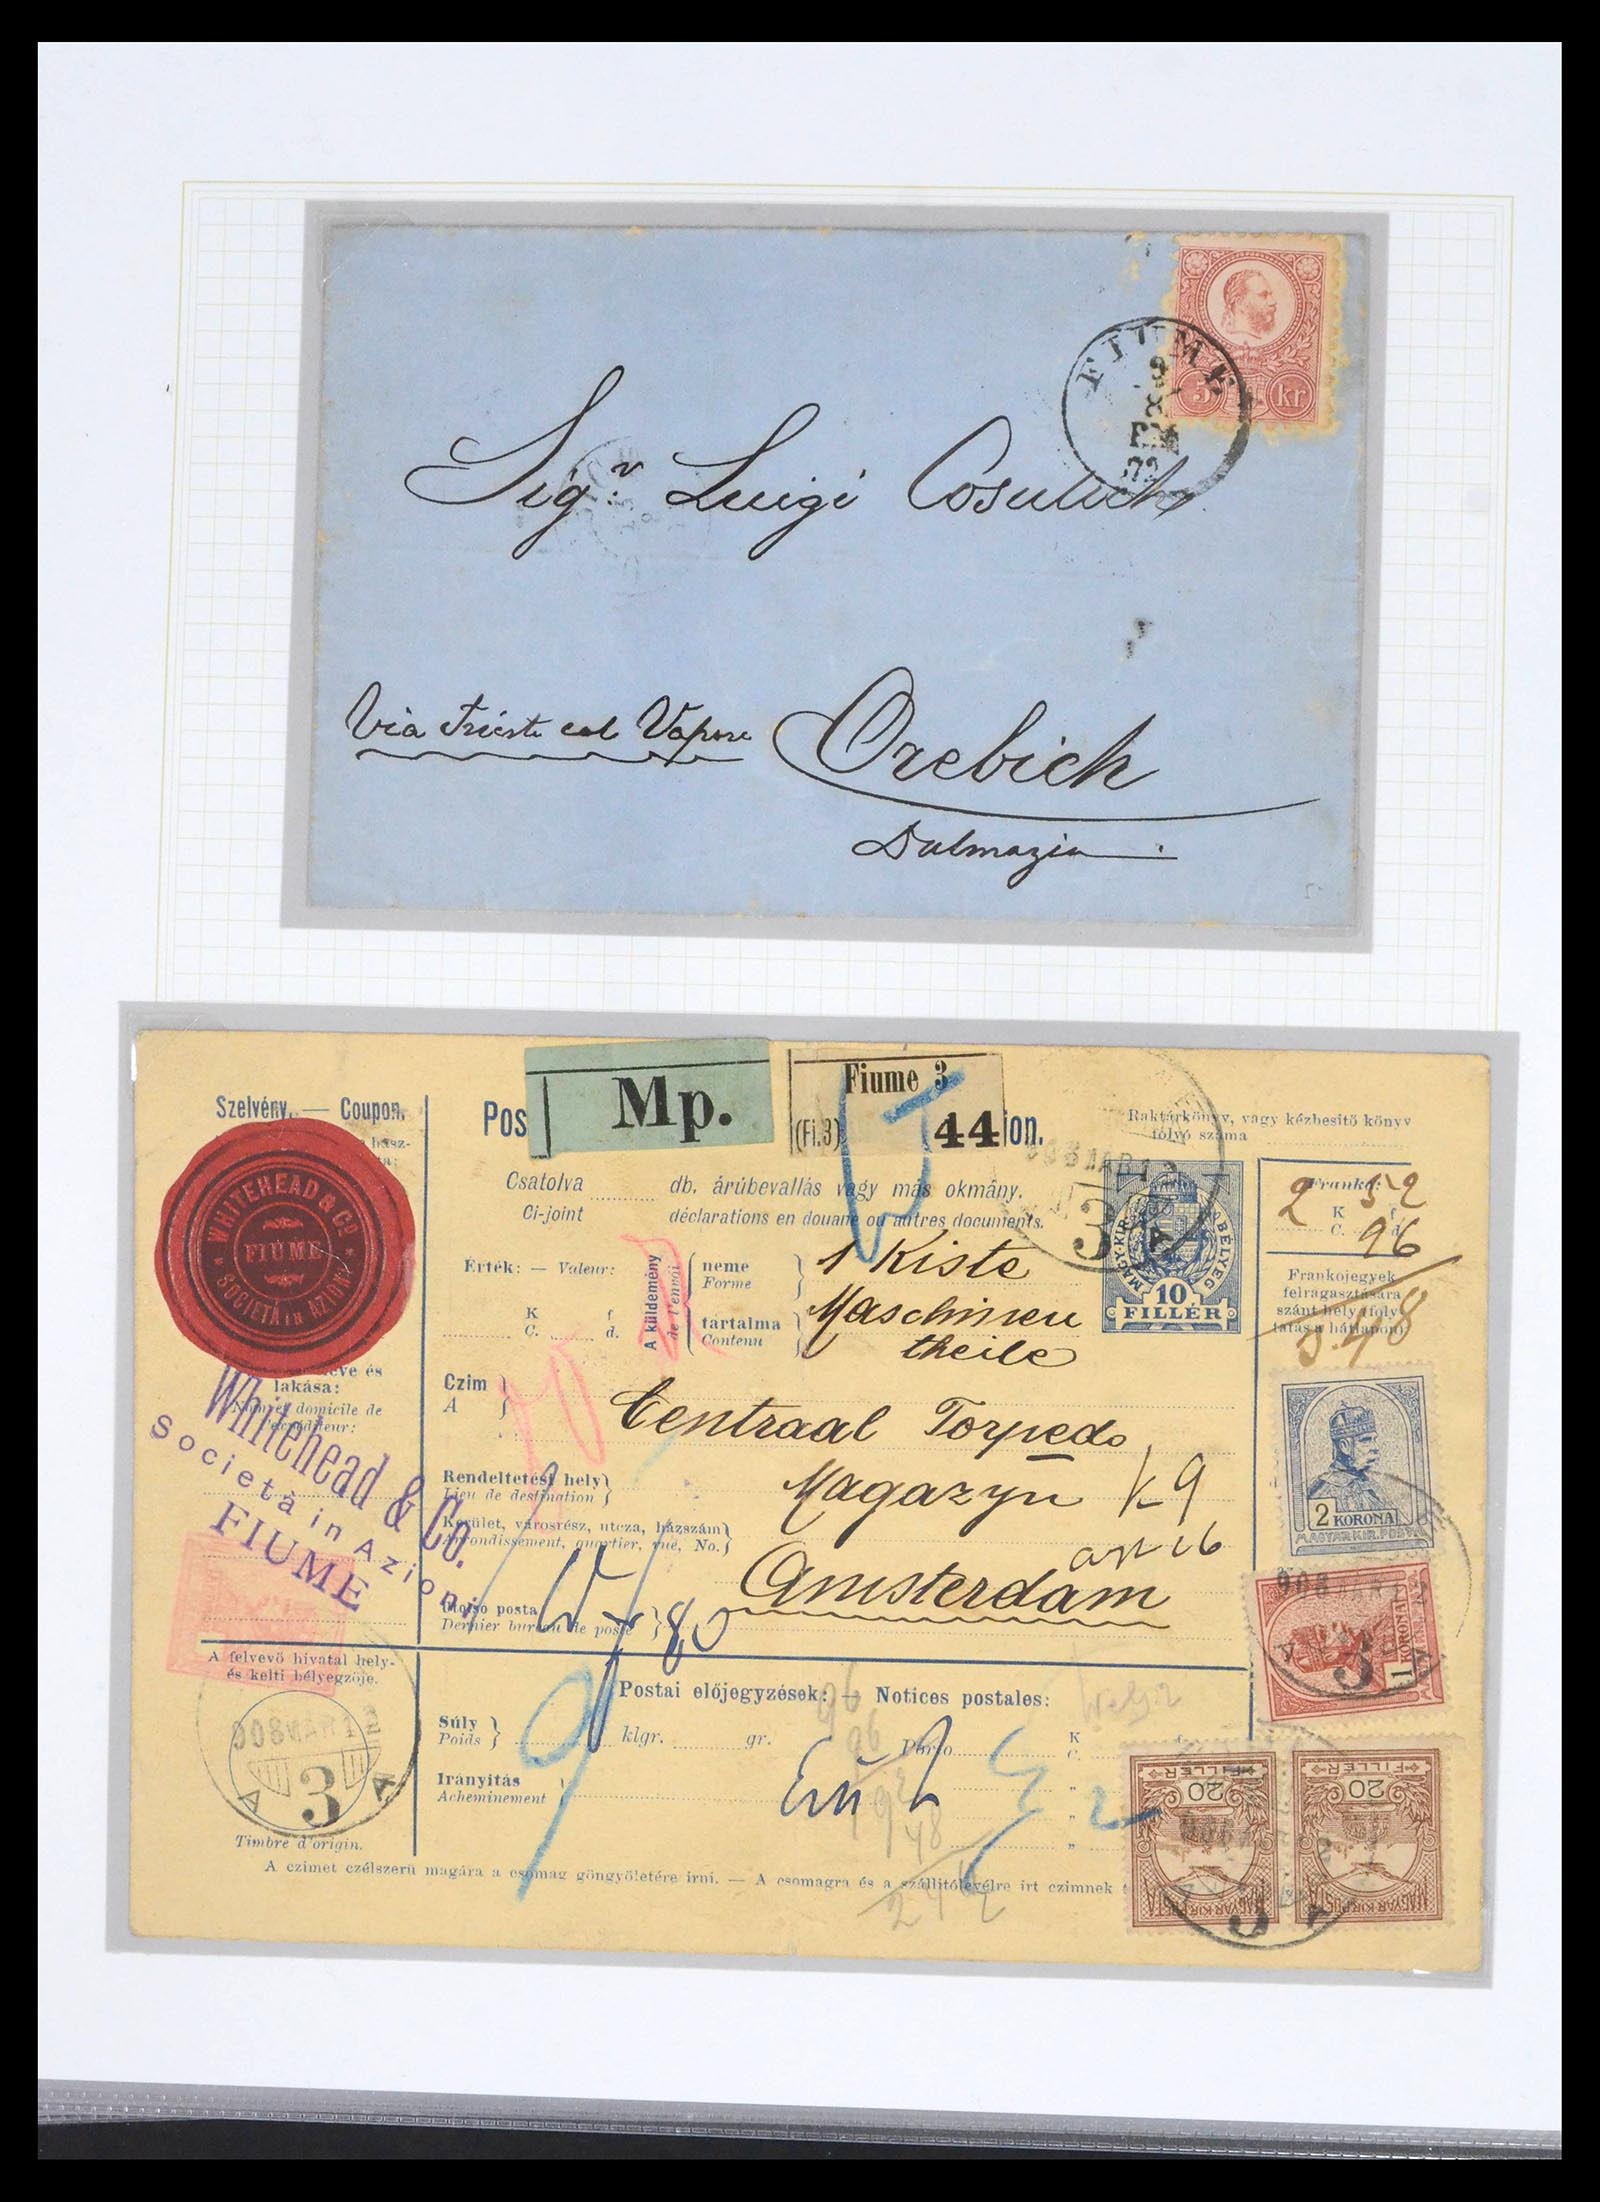 FIUME
9
72
5 kr
Sigr. Luigi Cosulich
Via Trieste col Vapore
Orebich
Dalmazia
Mp.
Fiume 3
(Fi.3)
44
Szelvény. — Coupon.
Pos
ion.
Raktárkönyv, vagy kézbesitő könyv
folyó száma
Csatolva db. árúbevallás vagy más okmány.
Ci-joint déclarations en douane ou autres documents.
WHITEHEAD & Co
FIUME
SOCIETÀ IN AZIONI
Érték: — Valeur:
K f
C. d.
A küldemény
de l'envoi
neme
Forme
1 Kiste
tartalma
Contenu
Maschinen
theile
MAGY. KIR. BÉLYEG
10
FILLÉR
Franko:
2 52
K f
C. d.
96
Frankojegyek
felragasztására
szánt hely (foly-
tatás a hátlapon)
3.48
lakása:
Nom et domicile de
Whitehead & Co.
Società in Azioni
FIUME
Czim
A
Centraal Torpedo
Rendeltetési hely
Lieu de destination
Magazyn K 9
Kerület, városrész, utcza, házszám
Arrondissement, quartier, rue, No.
Amsterdam
Utolsó posta
Dernier bureau de poste
80
2 KORONA
MAGYAR KIR. POSTA
1 KORONA
3
A felvevő hivatal hely-
és kelti bélyegzője.
908 MAR 12
A 3 A
Timbre d'origin.
Postai előjegyzések: — Notices postales:
Súly
Poids
klgr. gr.
Porto
K
C.
Irányitás
Acheminement
20 FILLÉR
MAGYAR KIR. POSTA
20 FILLÉR
MAGYAR KIR. POSTA
A czimet czélszerü magára a csomag göngyöletére irni. — A csomagra és a szállitólevélre irt czimnek